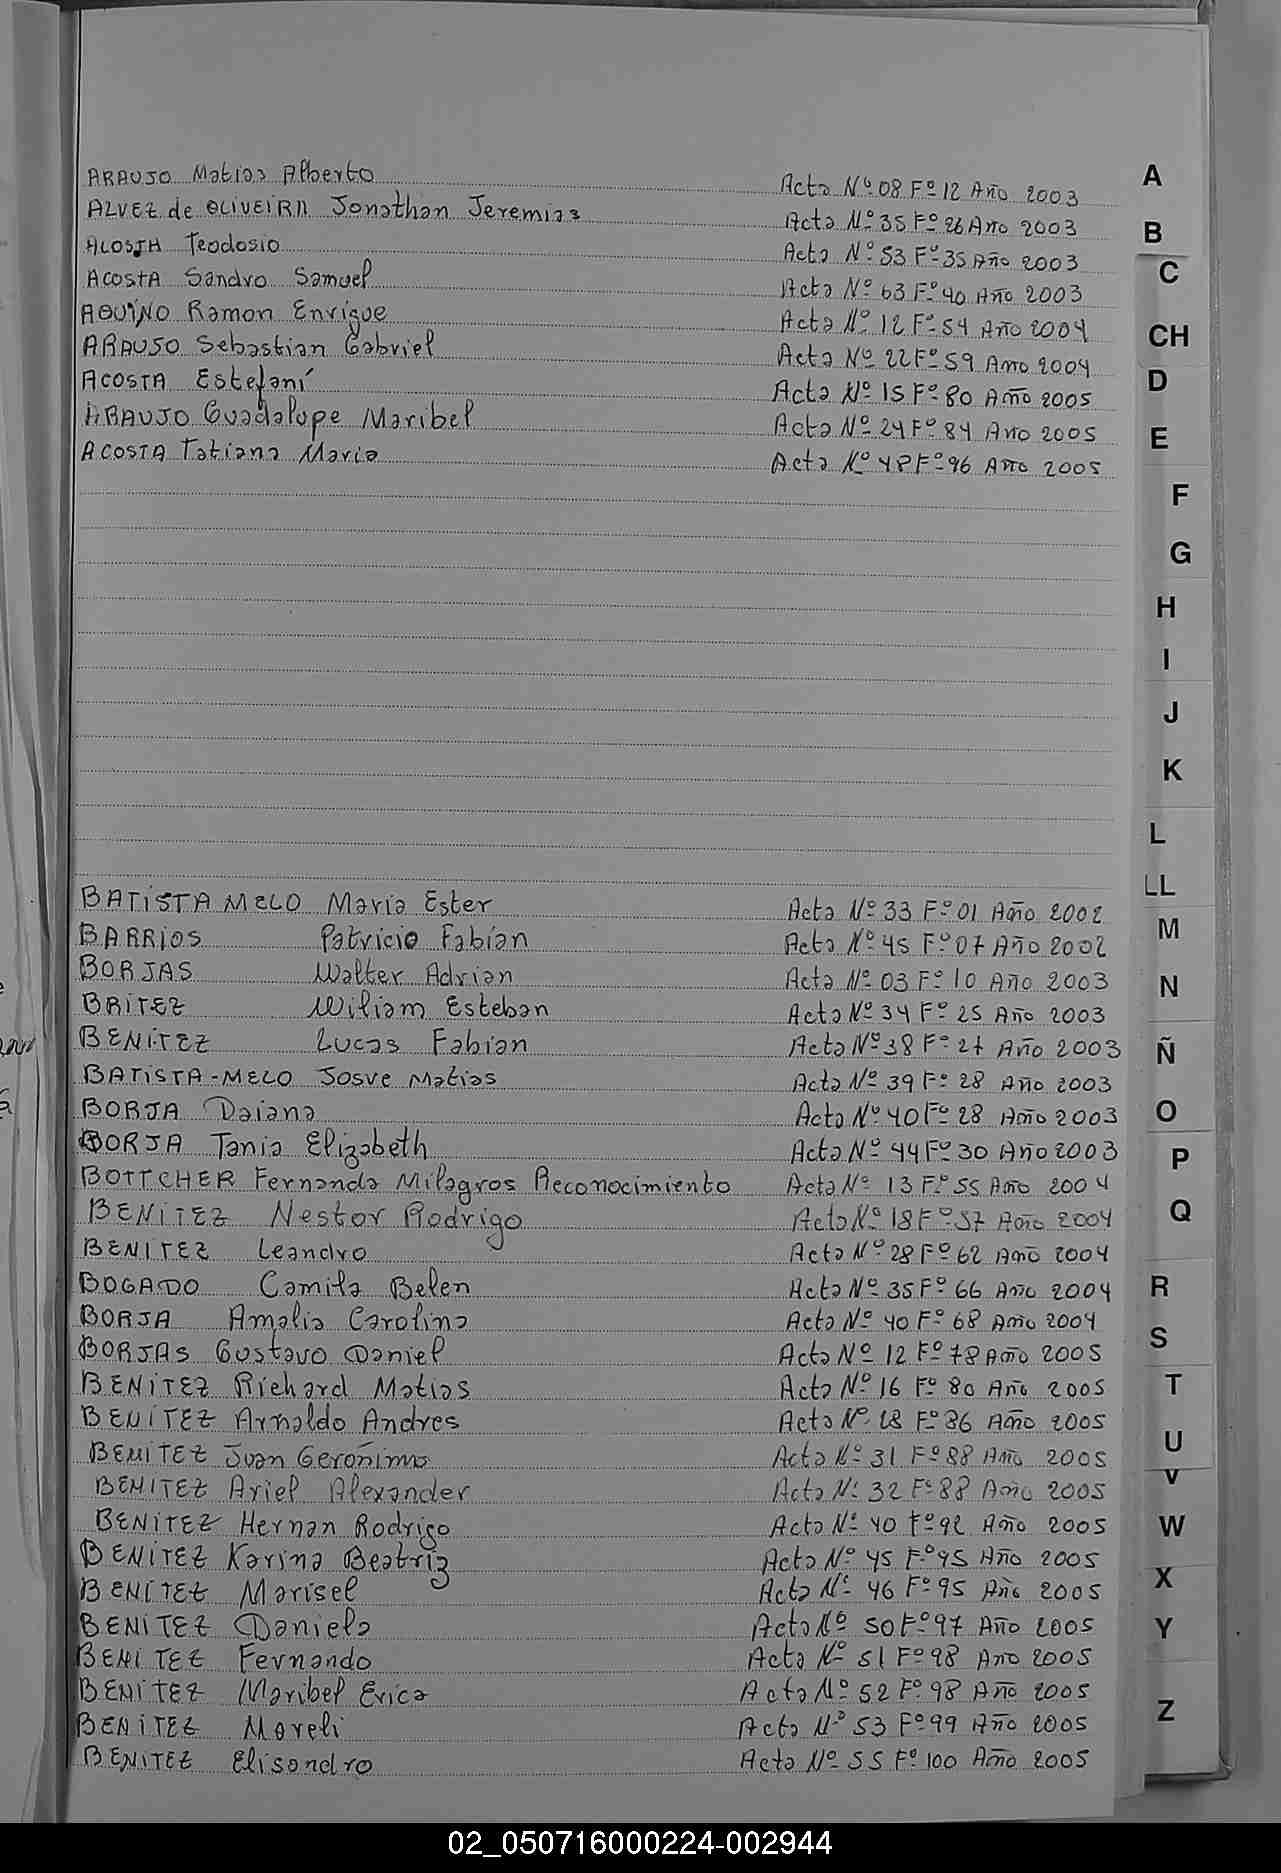 ARAUJO Matias Alberto Acta Nº 08 Fº 12 Año 2003
ALVEZ de OLIVEIRA Jonathan Jeremias Acta Nº 35 Fº 26 Año 2003
ACOSTA Teodosio Acta Nº 53 Fº 35 Año 2003
ACOSTA Sandro Samuel Acta Nº 63 Fº 40 Año 2003
AQUINO Ramon Enrique Acta Nº 12 Fº 54 Año 2004
ARAUJO Sebastian Gabriel Acta Nº 22 Fº 59 Año 2004
ACOSTA Estefaní Acta Nº 15 Fº 80 Año 2005
ARAUJO Guadalupe Maribel Acta Nº 24 Fº 84 Año 2005
ACOSTA Tatiana Maria Acta Nº 48 Fº 96 Año 2005
BATISTA MELO Maria Ester Acta Nº 33 Fº 01 Año 2002
BARRIOS Patricio Fabian Acta Nº 45 Fº 07 Año 2002
BORJAS Walter Adrian Acta Nº 03 Fº 10 Año 2003
BRITEZ Wiliam Esteban Acta Nº 34 Fº 25 Año 2003
BENITEZ Lucas Fabian Acta Nº 38 Fº 27 Año 2003
BATISTA-MELO Josue Matias Acta Nº 39 Fº 28 Año 2003
BORJA Daiana Acta Nº 40 Fº 28 Año 2003
BORJA Tania Elizabeth Acta Nº 44 Fº 30 Año 2003
BOTTCHER Fernanda Milagros Reconocimiento Acta Nº 13 Fº 55 Año 2004
BENITEZ Nestor Rodrigo Acta Nº 18 Fº 57 Año 2004
BENITEZ Leandro Acta Nº 28 Fº 62 Año 2004
BOGADO Camila Belen Acta Nº 35 Fº 66 Año 2004
BORJA Amalia Carolina Acta Nº 40 Fº 68 Año 2004
BORJAS Gustavo Daniel Acta Nº 12 Fº 78 Año 2005
BENITEZ Richard Matias Acta Nº 16 Fº 80 Año 2005
BENITEZ Arnaldo Andres Acta Nº 28 Fº 86 Año 2005
BENITEZ Juan Gerónimo Acta Nº 31 Fº 88 Año 2005
BENITEZ Ariel Alexander Acta Nº 32 Fº 88 Año 2005
BENITEZ Hernan Rodrigo Acta Nº 40 Fº 92 Año 2005
BENITEZ Karina Beatriz Acta Nº 45 Fº 95 Año 2005
BENITEZ Marisel Acta Nº 46 Fº 95 Año 2005
BENITEZ Daniela Acta Nº 50 Fº 97 Año 2005
BENITEZ Fernando Acta Nº 51 Fº 98 Año 2005
BENITEZ Maribel Erica Acta Nº 52 Fº 98 Año 2005
BENITEZ Mareli Acta Nº 53 Fº 99 Año 2005
BENITEZ Elisandro Acta Nº 55 Fº 100 Año 2005
A
B
C
CH
D
E
F
G
H
I
J
K
L
LL
M
N
Ñ
O
P
Q
R
S
T
U
V
W
X
Y
Z
02_050716000224-002944